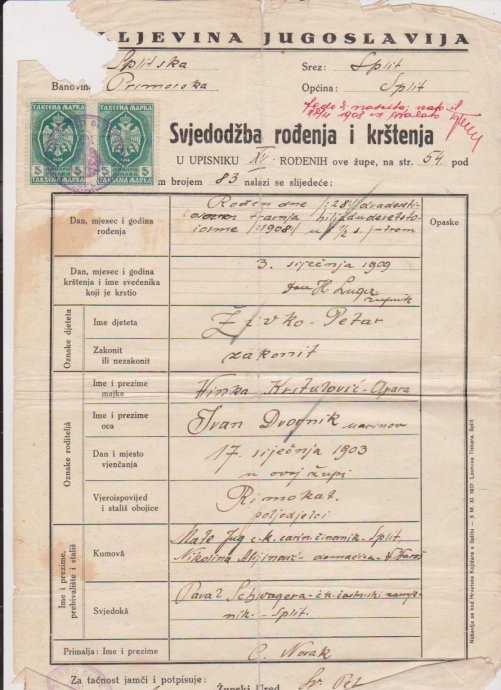 LJEVINA JUGOSLAVIJA
Splitska Srez: Split
Banovina Primorska Općina: Split
TAKSENA MARKA TAKSENA MARKA
5 5
1908
Svjedodžba rođenja i krštenja
U UPISNIKU XV. ROĐENIH ove župe, na str. 54 pod
m brojem 83. nalazi se slijedeće:
Dan, mjesec i godina rođenja
Rođen dne /:28:/ dvadesti-
travnja hiljadudevetsto-
iosme /:1908:/ u ½ s. jutrom
Opaske
Dan, mjesec i godina krštenja i ime svećenika koji je krstio
3. siječnja 1909
don H. Luger
župnik
Oznake djeteta
Ime djeteta
Živko-Petar
Zakonit ili nezakonit
zakonit
Oznake roditelja
Ime i prezime majke
Vinka Krstulović-Opara
Ime i prezime oca
Ivan Dvornik marinov
Dan i mjesto vjenčanja
17. siječnja 1903
u ovoj župi
Vjeroispovijed i stališ obojice
Rimokat.
poljodjelci
Ime i prezime, prebivalište i stališ
Kumovâ
Mate Jug c.k. carin. činovnik. Split
Nikolina domaćica
Svjedokâ
Paval Schwagera - čk. častnički zamje-
nik. - Split.
Primalja: Ime i prezime
C. Novak
Za tačnost jamči i potpisuje:
Župski Ured
Nabavlja se kod Hrvatske Knjižare u Splitu — S. M. XI. 1937. Leonova Tiskara, Split